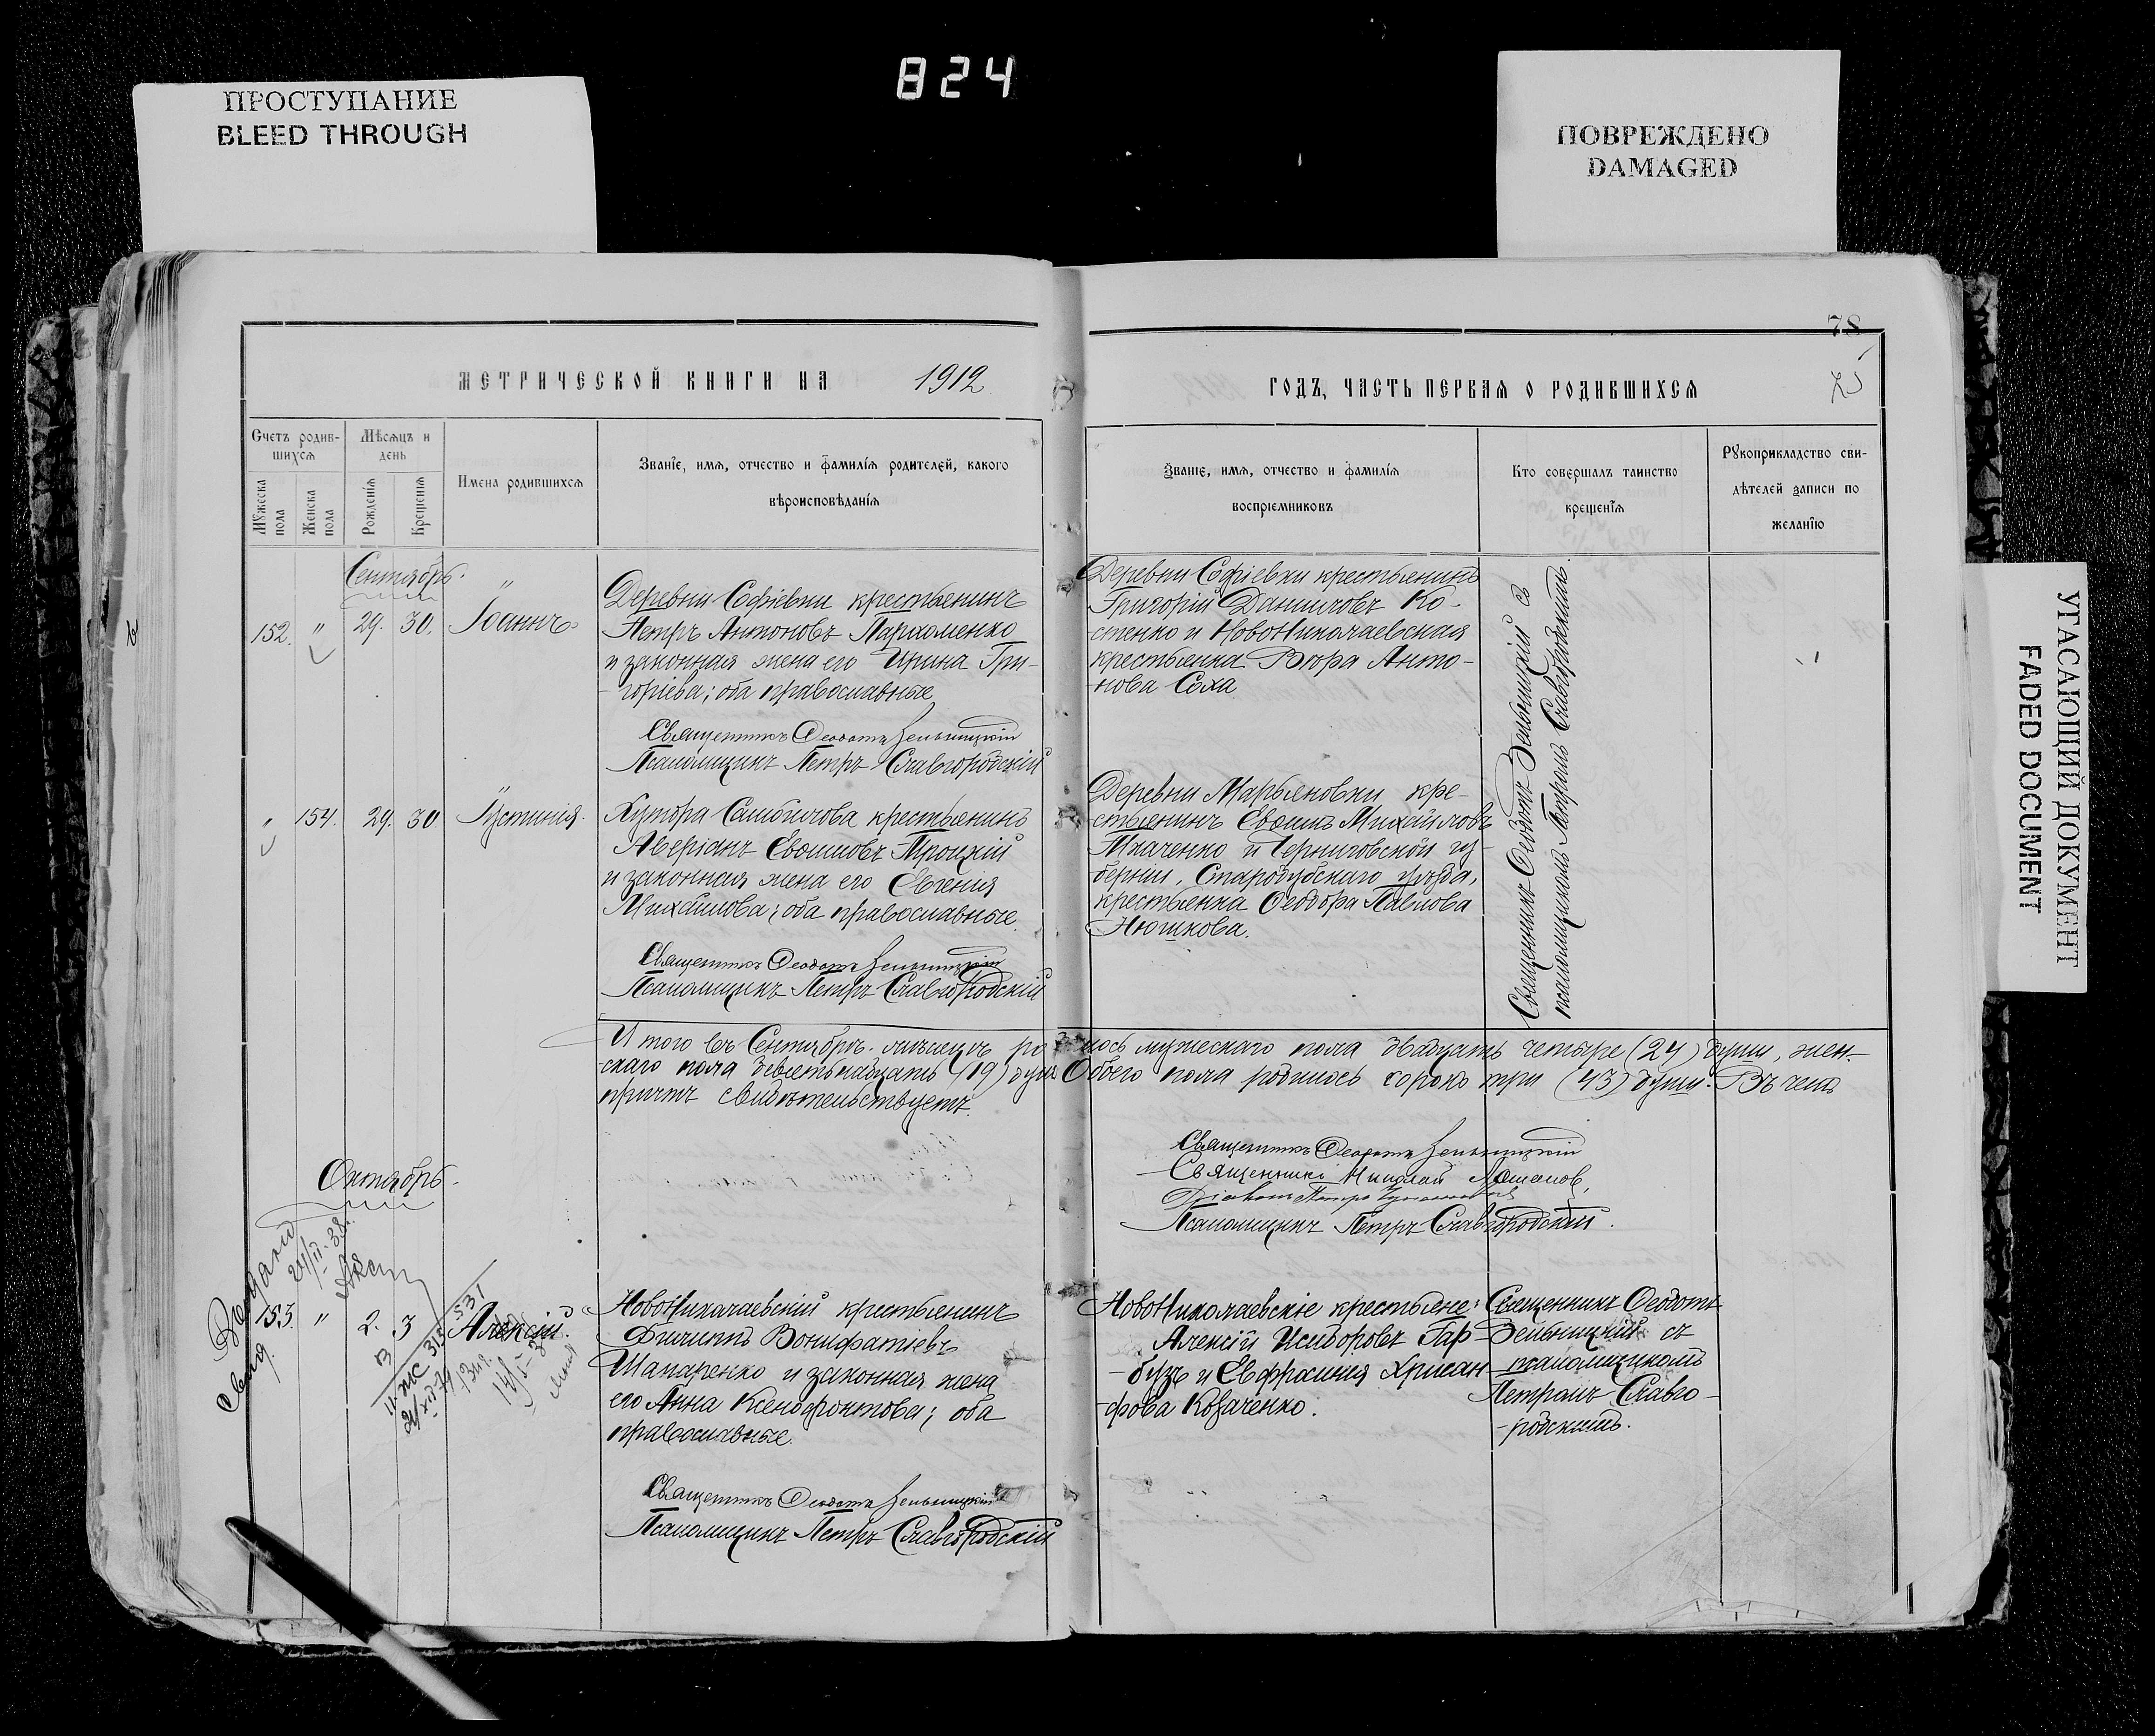 824
ПРОСТУПАНИЕ
BLEED THROUGH
ПОВРЕЖДЕНО
DAMAGED
УГАСАЮЩИЙ ДОКУМЕНТ
FADED DOCUMENT
78
МЕТРИЧЕСКОЙ КНИГИ НА 1912
ГОДЪ, ЧАСТЬ ПЕРВАЯ О РОДИВШИХСЯ
Счетъ родив-
шихся
Мужеска
пола
Женска
пола
Мѣсяцъ и
день
Рожденія
Крещенія
Имена родившихся
Званіе, имя, отчество и фамилія родителей, какого
вѣроисповѣданія
Званіе, имя, отчество и фамилія
воспріемниковъ
Кто совершалъ таинство
крещенія
Рукоприкладство сви-
дѣтелей записи по
желанію
Сентябрь.
152. " 29. 30. Іоаннъ
Деревни Софіевки крестьянинъ
Петръ Антоновъ Пархоменко
и законная жена его Ирина Гри-
-горіева; оба православные
Священникъ Ѳеодотъ Зельницкій
Псаломщикъ Петръ Славгородскій
Деревни Софіевки крестьянинъ
Григорій Даниловъ Ко-
стенко и НовоНиколаевская
крестьянка Вѣра Анто-
нова Соха
Священникъ Ѳеодотъ Зельницкій съ
псаломщикомъ Петромъ Славгородскимъ.
" 154. 29. 30 Іустинія.
Хутора Самойлова крестьянинъ
Аверіанъ Евѳимовъ Троцкій
и законная жена его Евгенія
Михайлова; оба православные.
Священникъ Ѳеодотъ Зельницкій
Псаломщикъ Петръ Славгородскій
Деревни Марьяновки кре-
стьянинъ Евѳимъ Михайловъ
Ткаченко и Черниговской гу-
берніи, Стародубскаго уѣзда,
крестьянка Ѳеодора Павлова
Нюшкова.
Итого въ Сентябрѣ мѣсяцѣ родилось мужескаго пола двадцать четыре (24) души, жен-
скаго пола девятьнадцать (19) душъ Обоего пола родилось сорокъ три (43) души. Въ чемъ
причтъ свидѣтельствуетъ.
Священникъ Ѳеодотъ Зельницкій
Священникъ Николай
Діаконъ Петръ
Псаломщикъ Петръ Славгородскій.
Октябрь.
153. " 2. 3 Алексій.
НовоНиколаевскій крестьянинъ
Филиппъ Вонифатіевъ
Шапаренко и законная жена
его Анна Ксенофонтова; оба
православные.
Священникъ Ѳеодотъ Зельницкій
Псаломщикъ Петръ Славгородскій
НовоНиколаевскіе крестьяне:
Алексій Исидоровъ Гар-
-бузъ и Евфросинія Хрисан-
-фова Козаченко.
Священникъ Ѳеодотъ
Зельницкій съ
псаломщикомъ
Петромъ Славго-
-родскимъ.